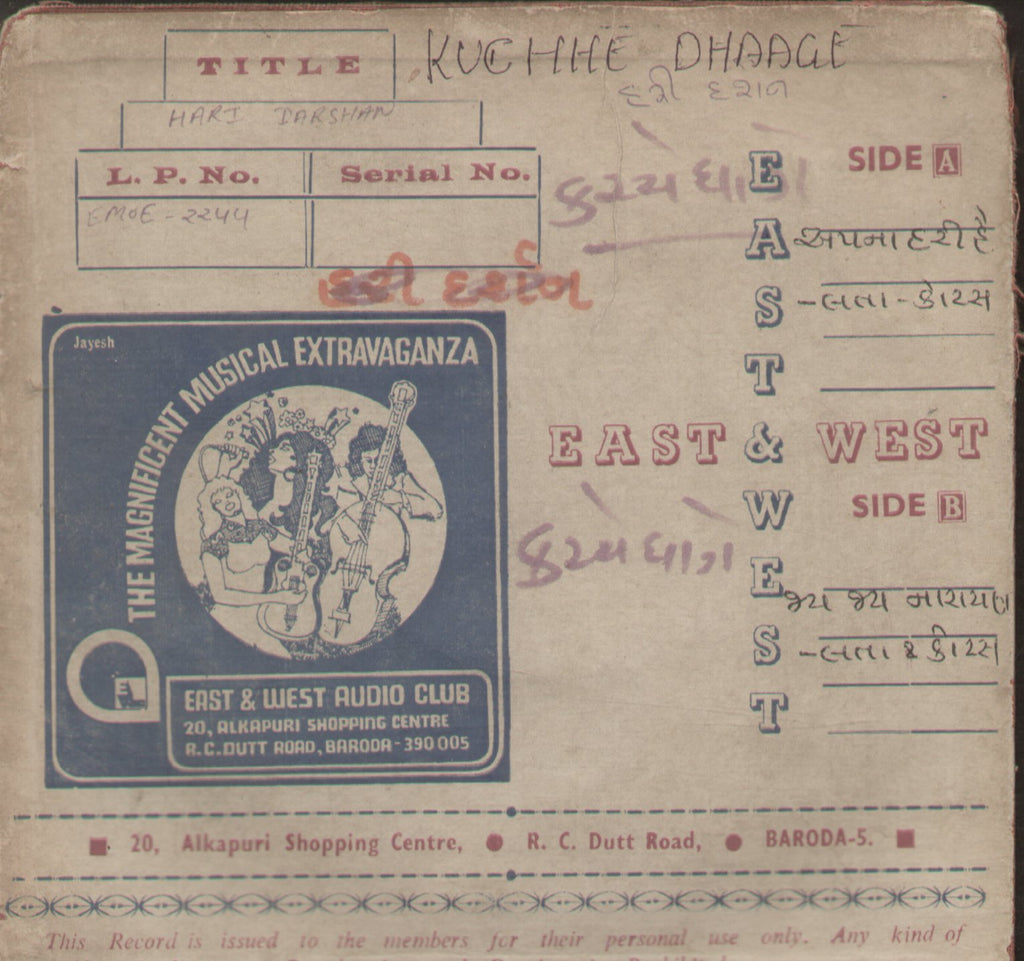 TITLE
KUCHHE DHAAGE
હરી દર્શન
HARI DARSHAN
L. P. No.
Serial No.
EMOE - 2244
કચ્ચે ધાગે
હરી દર્શન
SIDE A
અપના હરી હૈ
- લતા - કોરસ
EAST & WEST
EAST & WEST
SIDE B
કચ્ચે ધાગે
જય જય નારાયણ
- લતા & કોરસ
Jayesh
THE MAGNIFICENT MUSICAL EXTRAVAGANZA
EAST & WEST AUDIO CLUB
20, ALKAPURI SHOPPING CENTRE
R.C. DUTT ROAD, BARODA - 390 005
20, Alkapuri Shopping Centre, R. C. Dutt Road, BARODA-5.
This Record is issued to the members for their personal use only. Any kind of